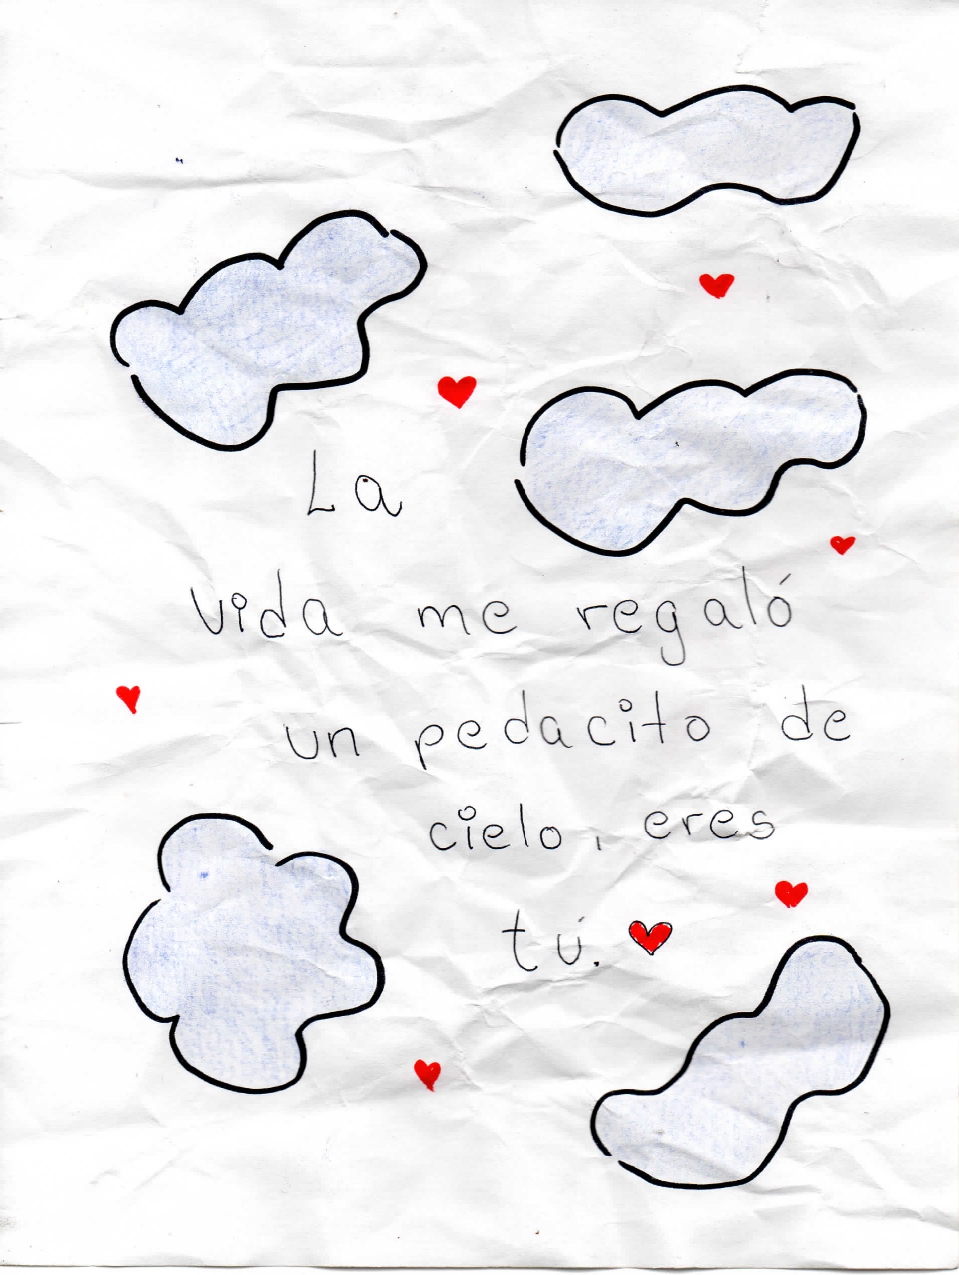 La
vida me regaló
un pedacito de
cielo, eres
tú.